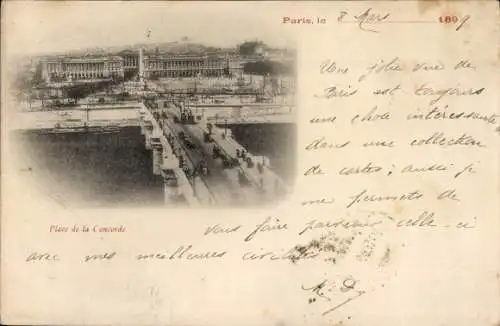 Paris, le 8 Mars 1899
Une jolie vue de
Paris est toujours
une chose intéressante
dans une collection
de cartes; aussi je
me permets de
vous faire parvenir celle-ci
avec mes meilleures civilités
Place de la Concorde